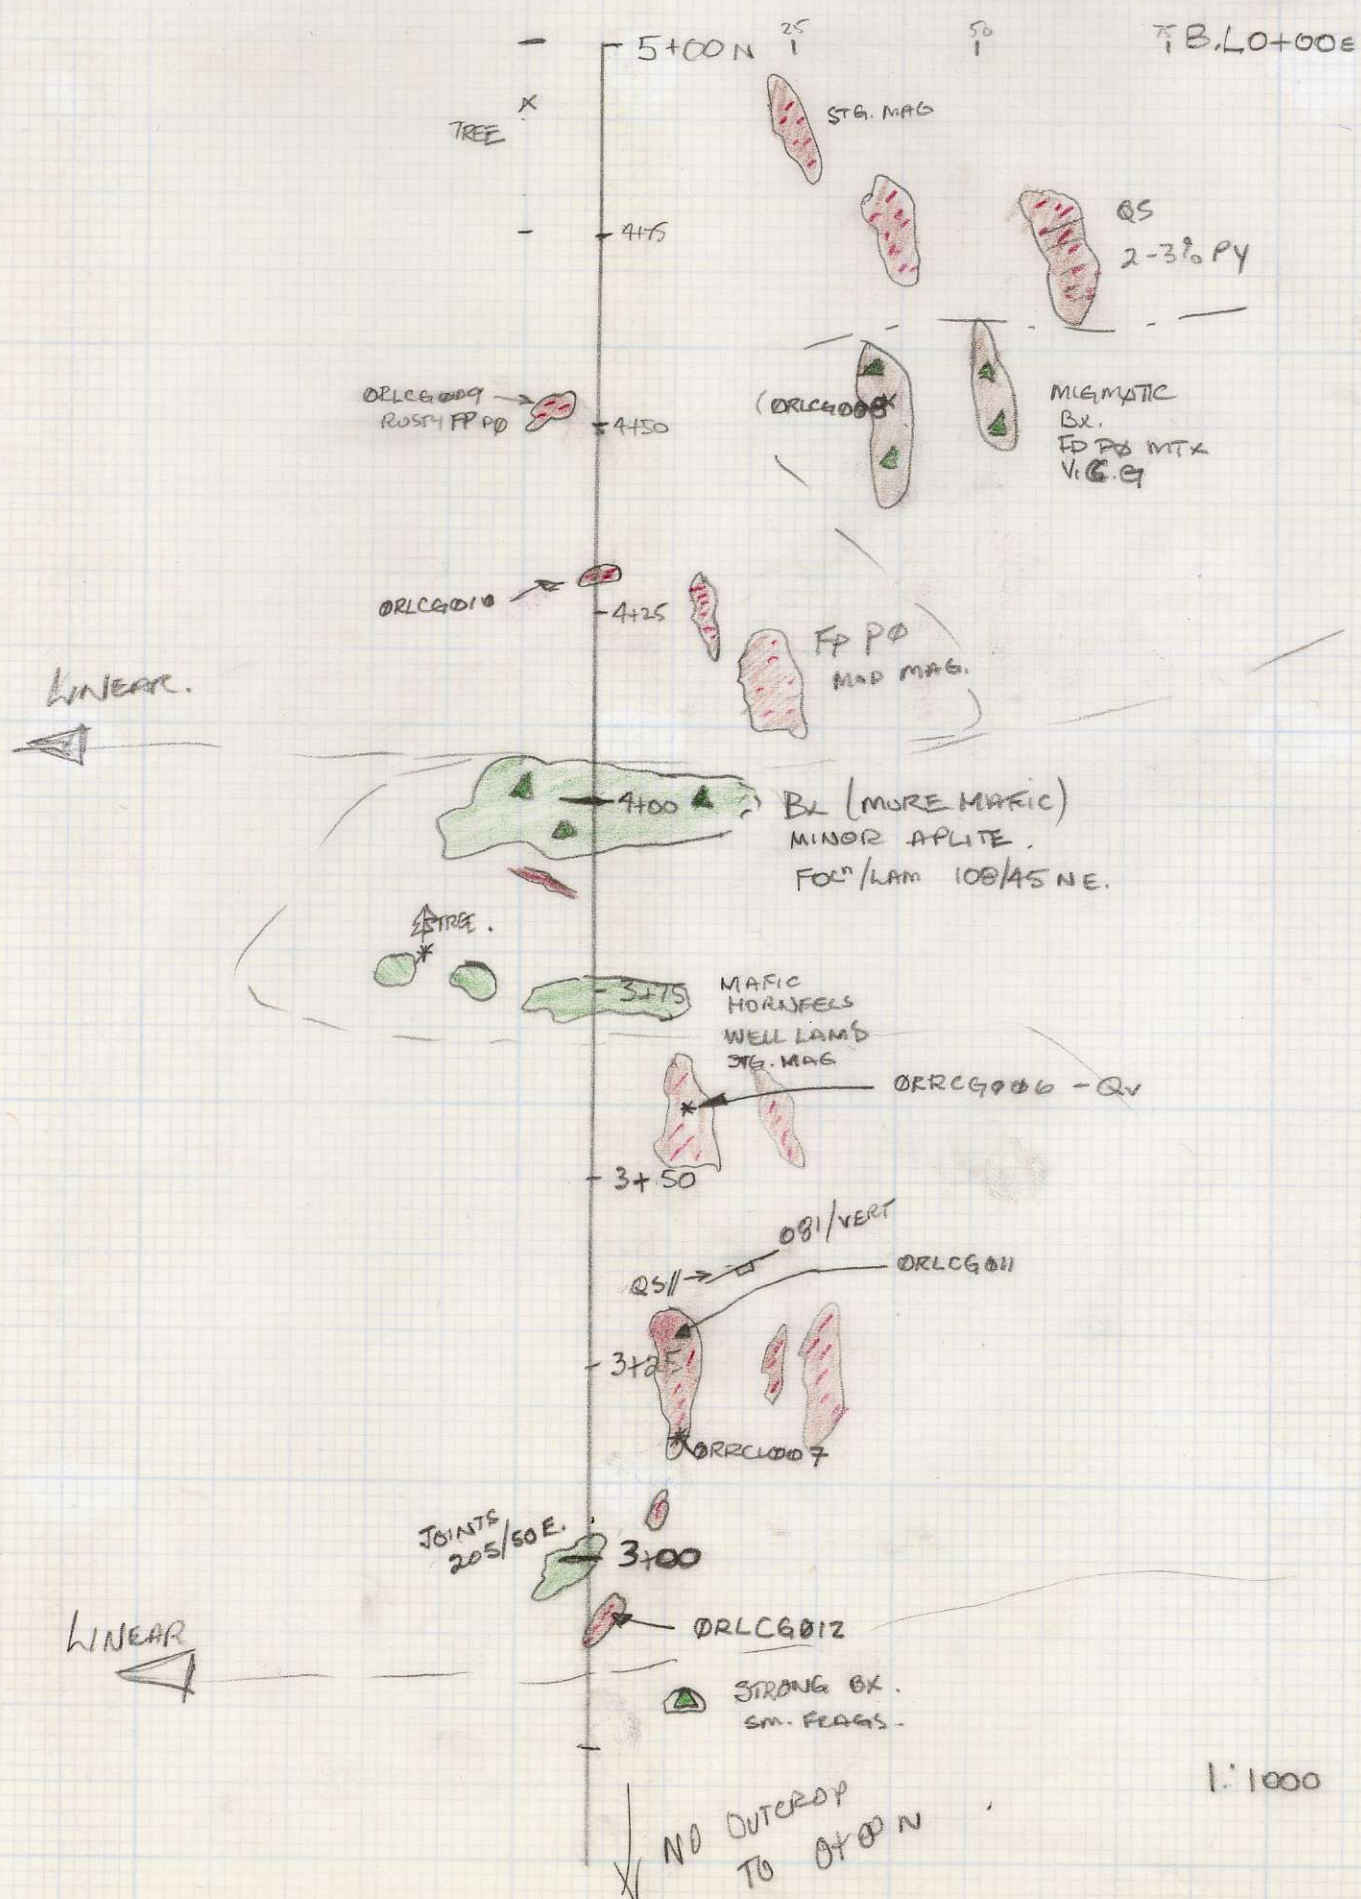 25
50
75
5+00N
B.L0+00E
STG. MAG
TREE
QS
2-3% PY
4+75
ØRLCGØØ9
RUSTY FP PØ
4+50
(ØRLCGØØ8
MIGMATIC
BX.
FD PØ MTX
V.C.G
ØRLCGØ1Ø
4+25
FP PØ
MOD MAG.
LINEAR.
4+00
BX (MORE MAFIC)
MINOR APLITE.
FOLn/LAM 108/45 NE.
TREE.
3+75
MAFIC
HORNFELS
WELL LAM'D
STG. MAG
ØRRCGØØ6 - QV
3+50
081/VERT
QS//
ØRLCGØ11
3+25
ØRRCLØØ7
JOINTS
205/50E.
3+00
ØRLCGØ12
LINEAR
STRONG BX.
SM. FRAGS.
1:1000
NO OUTCROP
TO 0+00 N